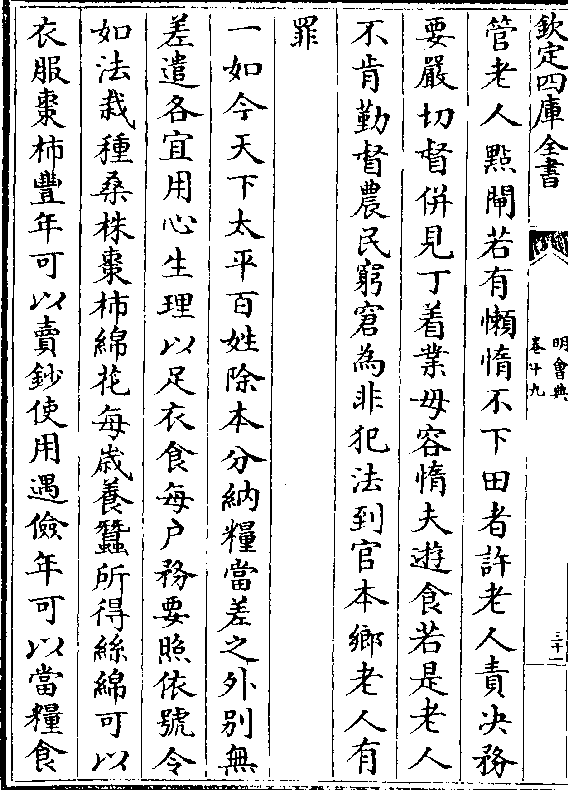 欽定四庫全書
明會典
卷十九
三十一
管老人點閘若有懶惰不下田者許老人責决務
要嚴切督併見丁着業毋容惰夫遊食若是老人
不肯勤督農民窮窘為非犯法到官本鄉老人有
罪
一如今天下太平百姓除本分納糧當差之外别無
差遣各宜用心生理以足衣食每户務要照依號令
如法栽種桑株棗柿綿花每歲養蠶所得絲綿可以
衣服棗柿豐年可以賣鈔使用遇儉年可以當糧食